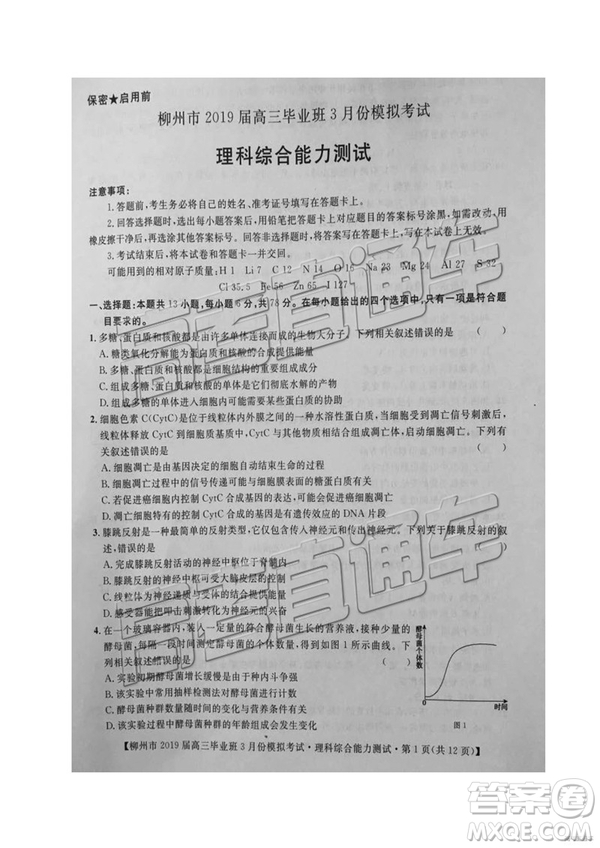 保密★启用前
柳州市2019届高三毕业班3月份模拟考试
理科综合能力测试
注意事项:
1.答题前,考生务必将自己的姓名、准考证号填写在答题卡上。
2.回答选择题时,选出每小题答案后,用铅笔把答题卡上对应题目的答案标号涂黑,如需改动,用
橡皮擦干净后,再选涂其他答案标号。回答非选择题时,将答案写在答题卡上,写在本试卷上无效。
3.考试结束后,将本试卷和答题卡一并交回。
可能用到的相对原子质量:H 1 Li 7 C 12 N 14 O 16 Na 23 Mg 24 Al 27 S 32
Cl 35.5 Fe 56 Zn 65 I 127
一、选择题:本题共13小题,每小题6分,共78分。在每小题给出的四个选项中,只有一项是符合题
目要求的。
1.多糖、蛋白质和核酸都是由许多单体连接成的生物大分子。下列相关叙述错误的是 ( )
A.糖类氧化分解能为蛋白质和核酸的合成提供能量
B.多糖、蛋白质和核酸都是细胞结构的组成成分
C.组成多糖、蛋白质和核酸的单体都具有多样性
D.细胞中蛋白质和核酸的合成过程可相互影响
2.细胞色素C(CytC)是位于线粒体内外膜之间的一种水溶性蛋白质,当细胞受到凋亡信号刺激后,
线粒体释放CytC到细胞质基质中,CytC与其他物质共同作用使细胞走向凋亡。下列有
关叙述错误的是 ( )
A.细胞凋亡是由基因决定的细胞自动结束生命的过程
B.细胞凋亡过程中的信号传递可能与线粒体有关
C.若促进癌细胞内控制CytC合成基因的表达可能会导致癌细胞凋亡
D.发生凋亡的细胞内控制CytC合成的DNA片段增多
3.膝跳反射是一种最简单的反射类型,它仅包含传入神经元和传出神经元。下列关于膝跳反射的叙
述,错误的是 ( )
A.完成膝跳反射活动的神经中枢位于脊髓内
B.膝跳反射的神经中枢可受大脑皮层的控制
C.线粒体为神经递质与受体的结合提供能量
D.效应器受到适宜刺激后可产生兴奋
4.在一个玻璃容器内,装入一定量的符合酵母菌生长的营养液,接种少量的
酵母菌,每隔一段时间测定酵母菌的个体数,结果如图1所示。下列叙述
错误的是 ( )
A.该实验初期酵母菌种群增长缓慢是由于个体间存在激烈斗争
B.该实验过程中常用抽样检测法对酵母菌进行计数
C.酵母菌数量随时间的变化可用数学模型来描述
D.该实验过程中酵母菌种群的年龄组成会发生变化
酵母菌个体数
时间
图1
【柳州市2019届高三毕业班3月份模拟考试·理科综合能力测试·第1页(共12页)】
高考直通车
高考直通车
答案圈